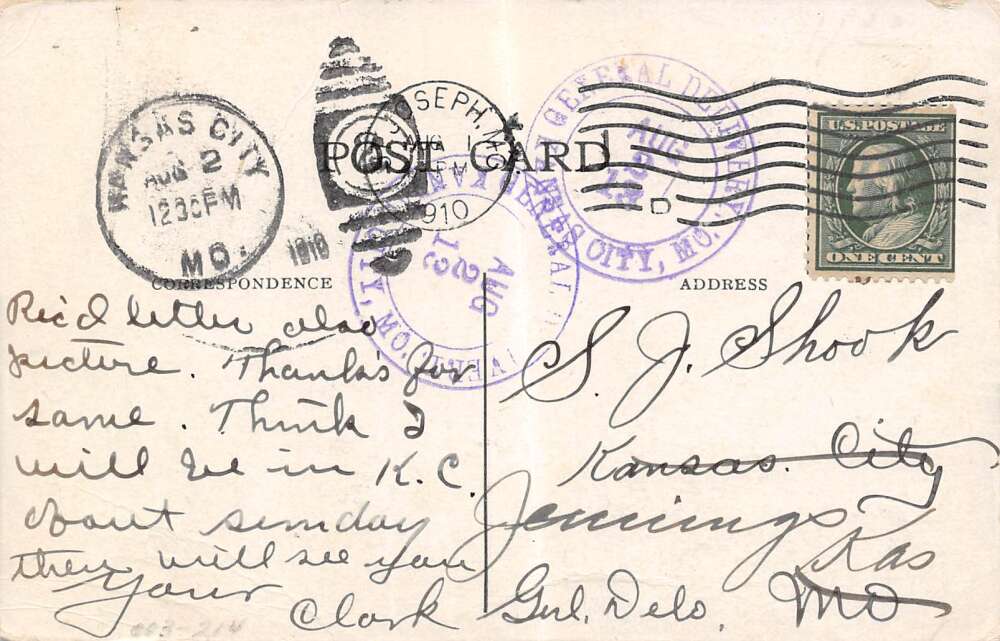 POST CARD
CORRESPONDENCE
ADDRESS
KANSAS CITY
AUG 2
12 30 PM
MO.
1910
ST. JOSEPH, MO.
AUG 1
PM
1910
D
GENERAL DELIVERY,
KANSAS CITY, MO.
AUG
2
GENERAL DELIVERY,
KANSAS CITY, MO.
AUG
22
12
U.S. POSTAGE
ONE CENT
Rec'd letter also
picture. Thanks for
same. Think I
will be in K.C.
about sunday
then will see you
Your
Clark
S. J. Shook
Kansas City
Jennings
Kas
Genl. Delo. Mo
003-214